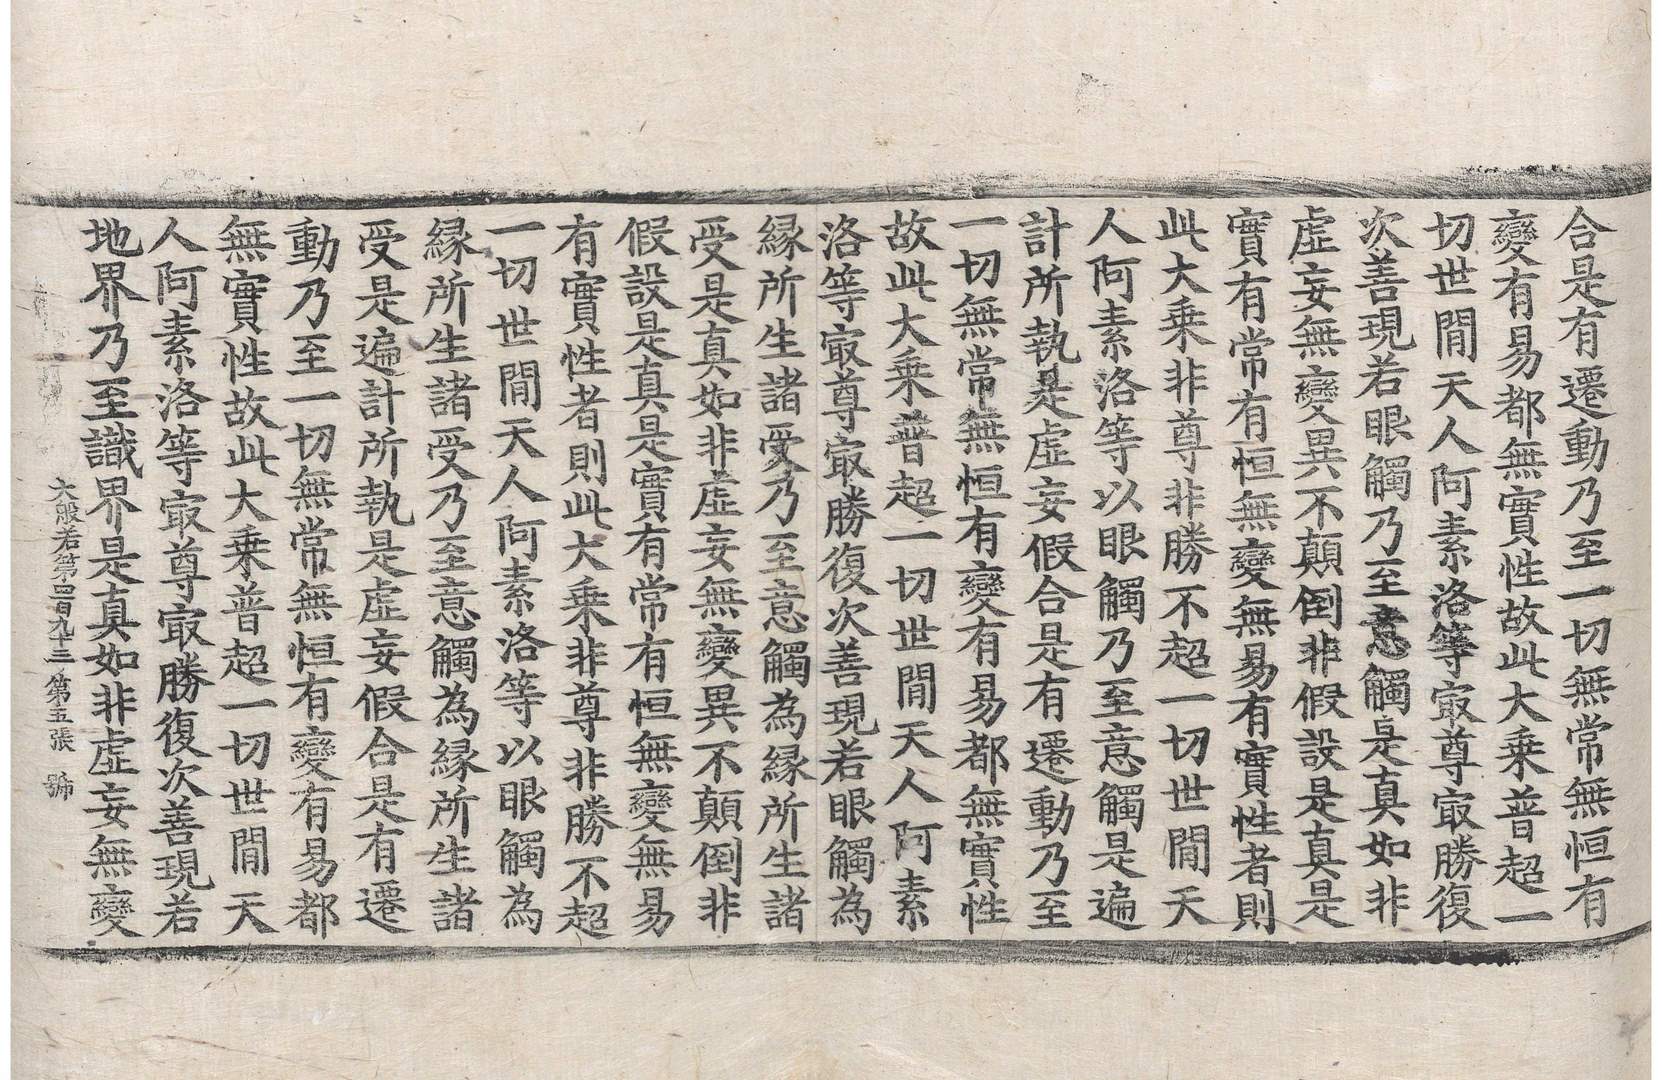 合是有遷動乃至一切無常無恒有
變有易都無實性故此大乘普超一
切世閒天人阿素洛等㝡尊㝡勝復
次善現若眼觸乃至意觸是真如非
虛妄無變異不顛倒非假設是真是
實有常有恒無變無易有實性者則
此大乘非尊非勝不超一切世閒天
人阿素洛等以眼觸乃至意觸是遍
計所執是虛妄假合是有遷動乃至
一切無常無恒有變有易都無實性
故此大乘普超一切世閒天人阿素
洛等㝡尊㝡勝復次善現若眼觸為
緣所生諸受乃至意觸為緣所生諸
受是真如非虛妄無變異不顛倒非
假設是真是實有常有恒無變無易
有實性者則此大乘非尊非勝不超
一切世閒天人阿素洛等以眼觸為
緣所生諸受乃至意觸為緣所生諸
受是遍計所執是虛妄假合是有遷
動乃至一切無常無恒有變有易都
無實性故此大乘普超一切世閒天
人阿素洛等㝡尊㝡勝復次善現若
地界乃至識界是真如非虛妄無變
大般若第四百九十三 第五張 號